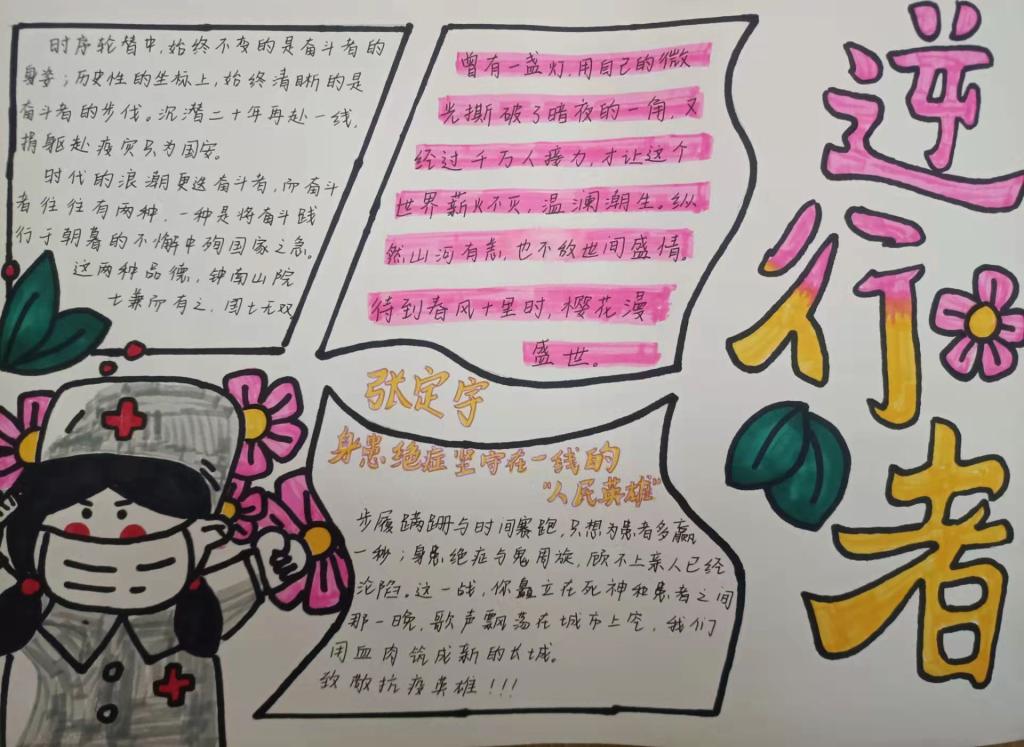 时序轮替中，始终不变的是奋斗者的
身姿；历史性的坐标上，始终清晰的是
奋斗者的步伐。沉潜二十年再赴一线，
捐躯赴疫灾只为国安。
时代的浪潮更迭奋斗者，而奋斗
者往往有两种，一种是将奋斗践
行于朝暮的不懈中殉国家之急。
这两种品德，钟南山院
士兼而有之，国士无双
曾有一盏灯，用自己的微
光撕破了暗夜的一角，又
经过千万人接力，才让这个
世界薪火不灭，温澜潮生。纵
然山河有恙，也不敌世间盛情。
待到春风十里时，樱花漫
盛世。
逆行者
张定宇
身患绝症坚守在一线的
“人民英雄”
步履蹒跚与时间赛跑，只想为患者多赢
一秒；身患绝症与鬼周旋，顾不上亲人已经
沦陷。这一战，你矗立在死神和患者之间
那一晚，歌声飘荡在城市上空，我们
用血肉筑成新的长城。
致敬抗疫英雄！！！